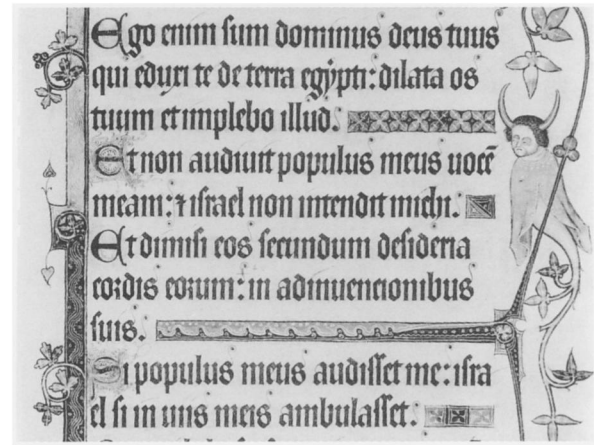 Ego enim sum dominus deus tuus
qui eduxi te de terra egypti: dilata os
tuum et implebo illud.
Et non audiuit populus meus uocẽ
meam: ⁊ israel non intendit michi.
Et dimisi eos secundum desideria
cordis eorum: in adinuencionibus
suis.
Si populus meus audisset me: isra
el si in uiis meis ambulasset.